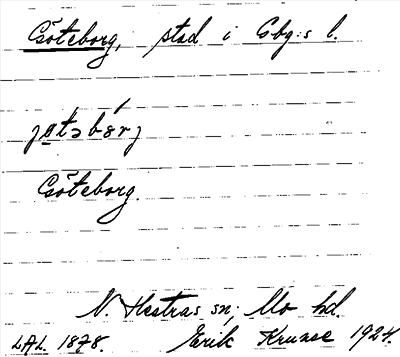 Göteborg, stad i Gbg:s l.
Göteborg.
N. Hestras sn; Mo hd.
LAL. 1878. Erik Kruuse 1924.